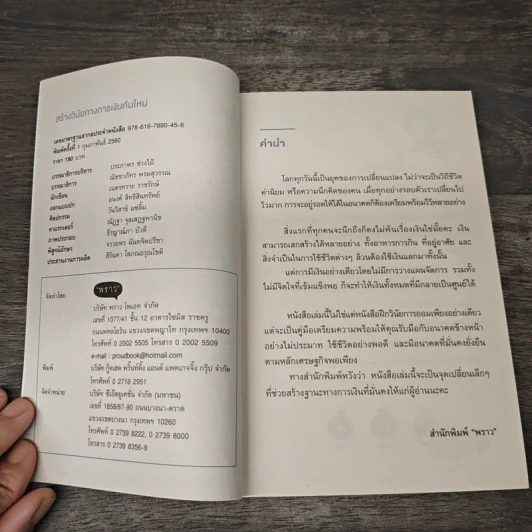 สร้างวินัยทางการเงินกันใหม่
เลขมาตรฐานสากลประจำหนังสือ 978-616-7890-45-6
พิมพ์ครั้งที่ 1 กุมภาพันธ์ 2560
ราคา 180 บาท
บรรณาธิการบริหาร ประภาพร ช่างไม้
บรรณาธิการ ณัชชาภัทร พรมสุวรรณ
นักเขียน เนตรทราย ราชรักษ์
ออกแบบปก อนงค์ สิทธิสินทรัพย์
ศิลปกรรม วันวิสาข์ แซ่อึ้ม
คาแรกเตอร์ ณัฏฐา จุลเสฏฐพานิช
ภาพประกอบ ธีรญาณ์ภา บัวดี
พิสูจน์อักษร จรวยพร ฉันทจิตปรีชา
ประสานงานการผลิต สิรินดา โสภณอรุณโชติ
จัดทำโดย "พราว"
บริษัท พราว โพเอท จำกัด
เลขที่ 1077/41 ชั้น 12 อาคารไซมิส ราชครู
ถนนพหลโยธิน แขวง/เขตพญาไท กรุงเทพฯ 10400
โทรศัพท์ 0 2002 5505 โทรสาร 0 2002 5509
e-mail : proudbook@hotmail.com
พิมพ์ บริษัท กู๊ดเฮด พริ้นท์ติ้ง แอนด์ แพคเกจจิ้ง กรุ๊ป จำกัด
โทรศัพท์ 0 2718 2951
จัดจำหน่าย บริษัท ซีเอ็ดยูเคชั่น จำกัด (มหาชน)
เลขที่ 1858/87-90 ถนนบางนา-ตราด
แขวง/เขตบางนา กรุงเทพฯ 10260
โทรศัพท์ 0 2739 8222, 0 2739 8000
โทรสาร 0 2739 8356-9
คำนำ
โลกทุกวันนี้เป็นยุคของการเปลี่ยนแปลง ไม่ว่าจะเป็นวิถีชีวิต
ค่านิยม หรือความนึกคิดของคน เมื่อทุกอย่างรอบตัวเราเปลี่ยนไป
ไวมาก การจะอยู่รอดให้ได้ในอนาคตก็ต้องเตรียมพร้อมไว้หลายอย่าง
สิ่งแรกที่ทุกคนจะนึกถึงก็คงไม่พ้นเรื่องเงินใช่มั้ยคะ เงิน
สามารถเสกสร้างได้หลายอย่าง ทั้งอาหารการกิน ที่อยู่อาศัย และ
สิ่งจำเป็นในการใช้ชีวิตต่างๆ ล้วนต้องใช้เงินแลกมาทั้งนั้น
แต่การมีเงินอย่างเดียวโดยไม่มีการวางแผนจัดการ รวมทั้ง
ไม่มีจิตใจที่เข้มแข็งพอ ก็จะทำให้เงินทั้งหมดที่มีกลายเป็นศูนย์ได้
หนังสือเล่มนี้ไม่ใช่แค่หนังสือฝึกวินัยการออมเพียงอย่างเดียว
แต่จะเป็นคู่มือเตรียมความพร้อมให้คุณรับมือกับอนาคตข้างหน้า
อย่างไม่ประมาท ใช้ชีวิตอย่างพอดี และมีอนาคตที่มั่นคงยั่งยืน
ตามหลักเศรษฐกิจพอเพียง
ทางสำนักพิมพ์หวังว่า หนังสือเล่มนี้จะเป็นจุดเปลี่ยนเล็กๆ
ที่ช่วยสร้างฐานะทางการเงินที่มั่นคงให้แก่ผู้อ่านนะคะ
สำนักพิมพ์ "พราว"